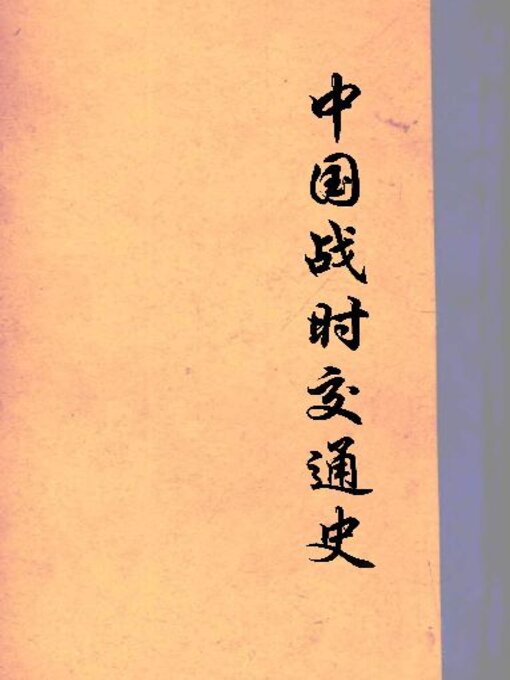 中国战时交通史